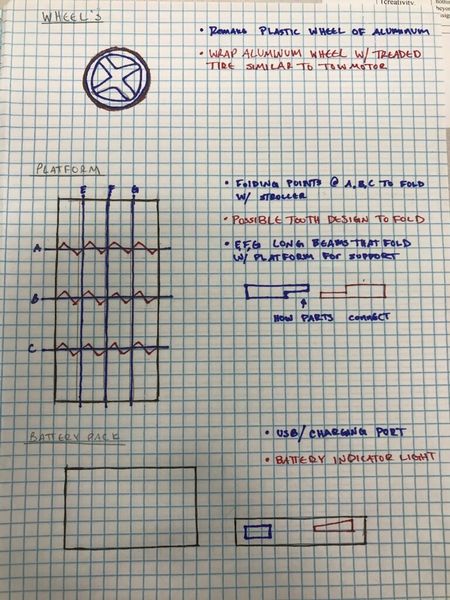 creativity.
WHEEL'S
• REMAKE PLASTIC WHEEL OF ALUMINUM
• WRAP ALUMINUM WHEEL W/ TREADED
TIRE SIMILAR TO TOWMOTOR
PLATFORM
E F G
A
B
C
• FOLDING POINTS @ A,B,C TO FOLD
W/ STROLLER
• POSSIBLE TOOTH DESIGN TO FOLD
• E,F,G LONG BEAMS THAT FOLD
W/ PLATFORM FOR SUPPORT
HOW PARTS CONNECT
BATTERY PACK
• USB/ CHARGING PORT
• BATTERY INDICATOR LIGHT